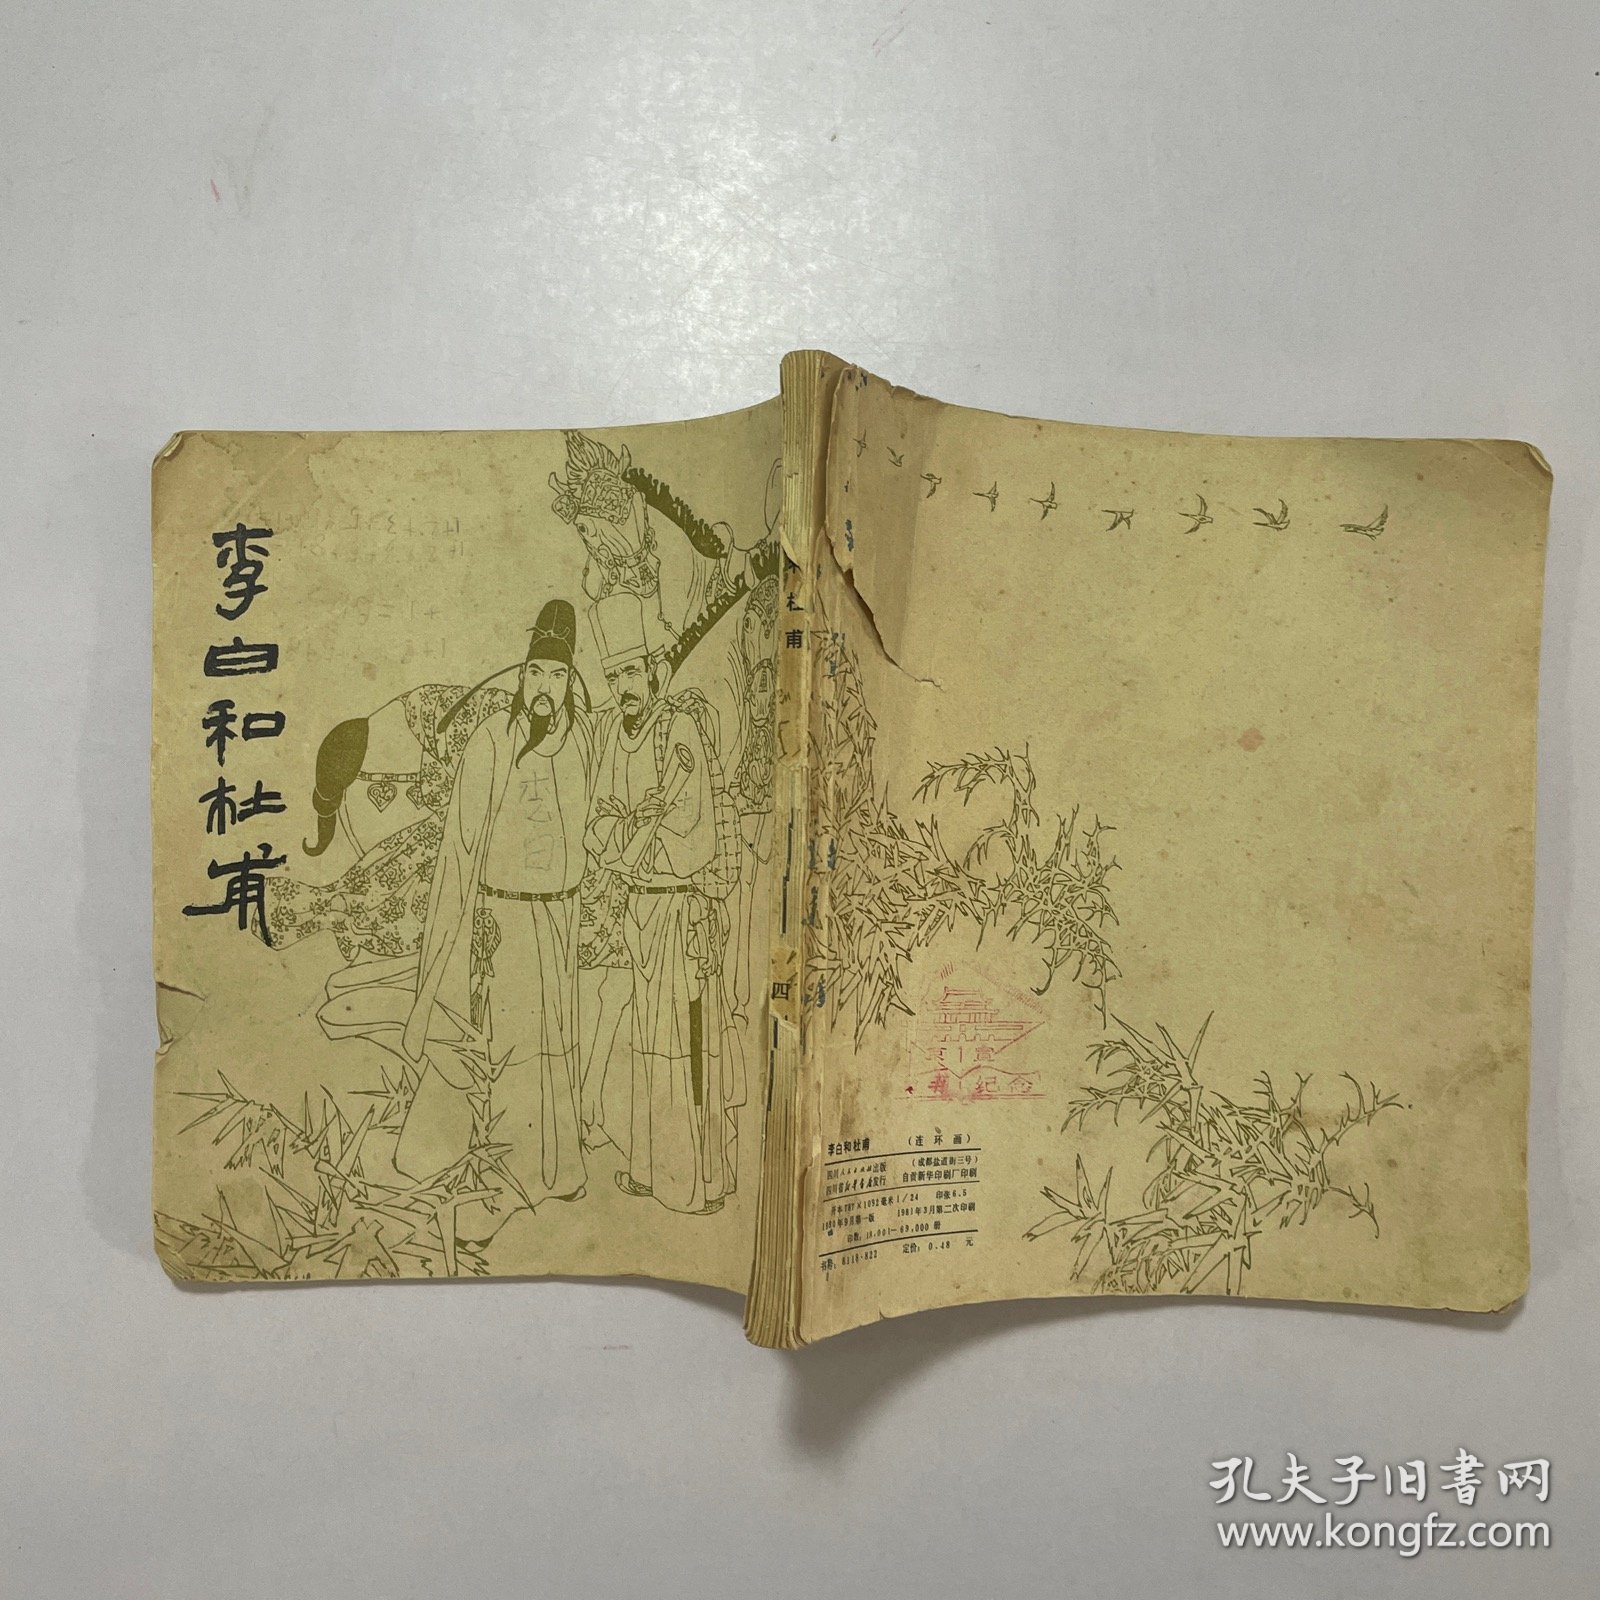 李白和杜甫
李白
杜甫
四川
纪念
李白和杜甫 （连环画）
四川人民出版社出版 （成都盐道街三号）
四川省新华书店发行 自贡新华印刷厂印刷
开本787×1092毫米1/24 印张6.5
1980年9月第一版 1981年3月第二次印刷
印数：18,001—69,000册
书号：8118·822 定价：0.48 元
孔夫子旧书网
www.kongfz.com